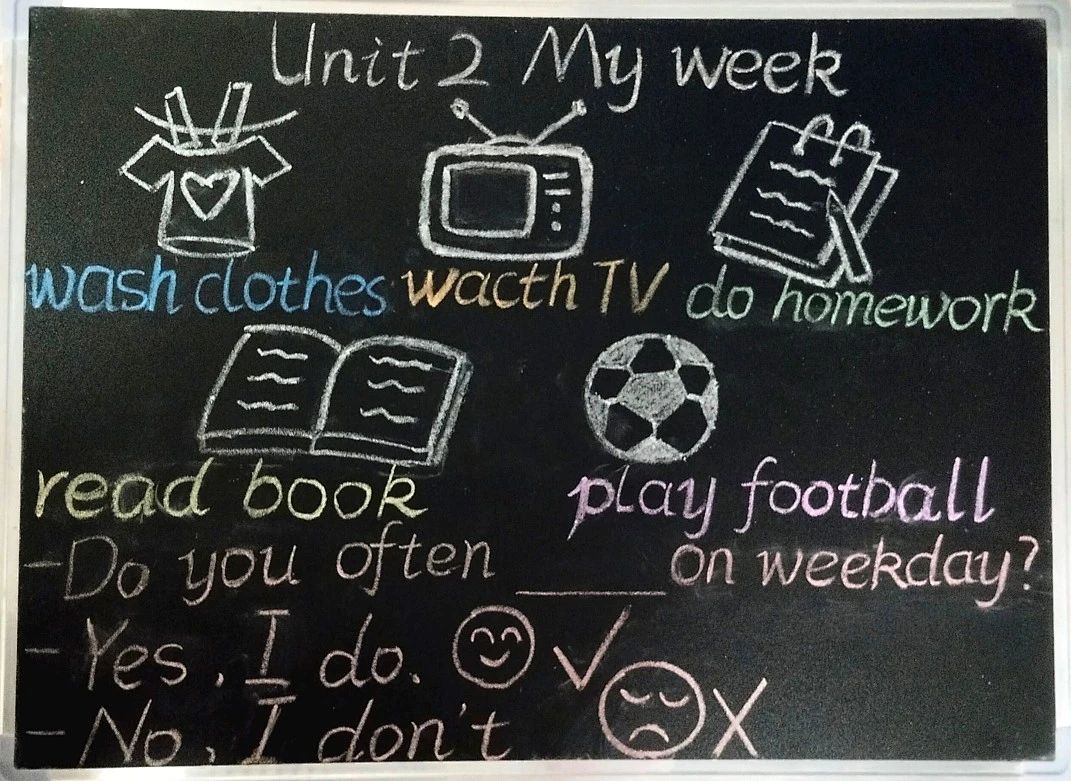 Unit 2 My week
wash clothes wacth TV do homework
read book play football
-Do you often ______ on weekday?
- Yes, I do.
- No, I don't